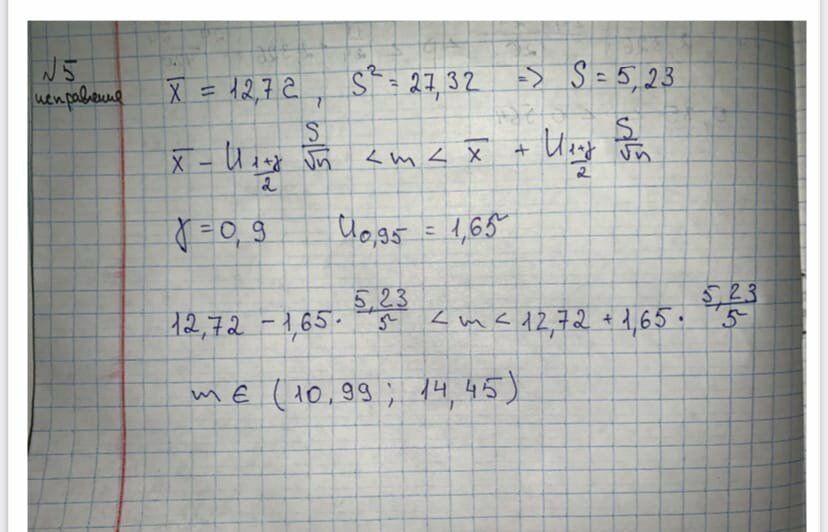 №5
исправление
x̄ = 12,72 , S² = 27,32 => S = 5,23
x̄ - U_{(1+γ)/2} S/√n < m < x̄ + U_{(1+γ)/2} S/√n
γ = 0,9 U_{0,95} = 1,65
12,72 - 1,65 · 5,23/5 < m < 12,72 + 1,65 · 5,23/5
m ∈ (10,99 ; 14,45)